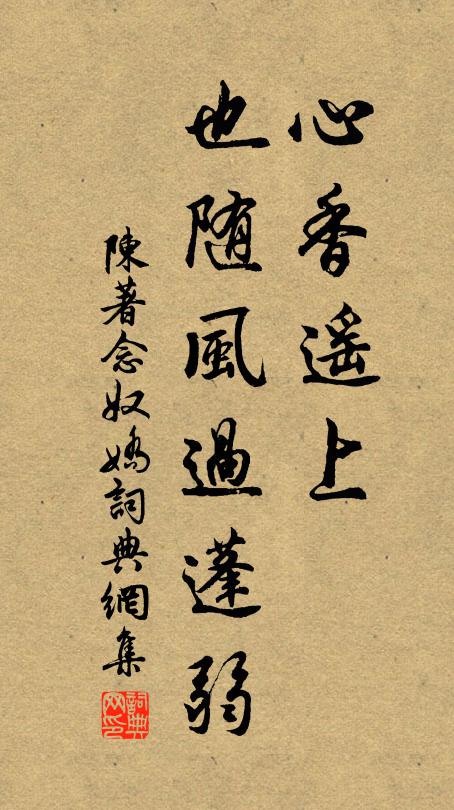 心香遥上
也随風過蓬弱
陳著念奴嬌詞典網集
詞典网印